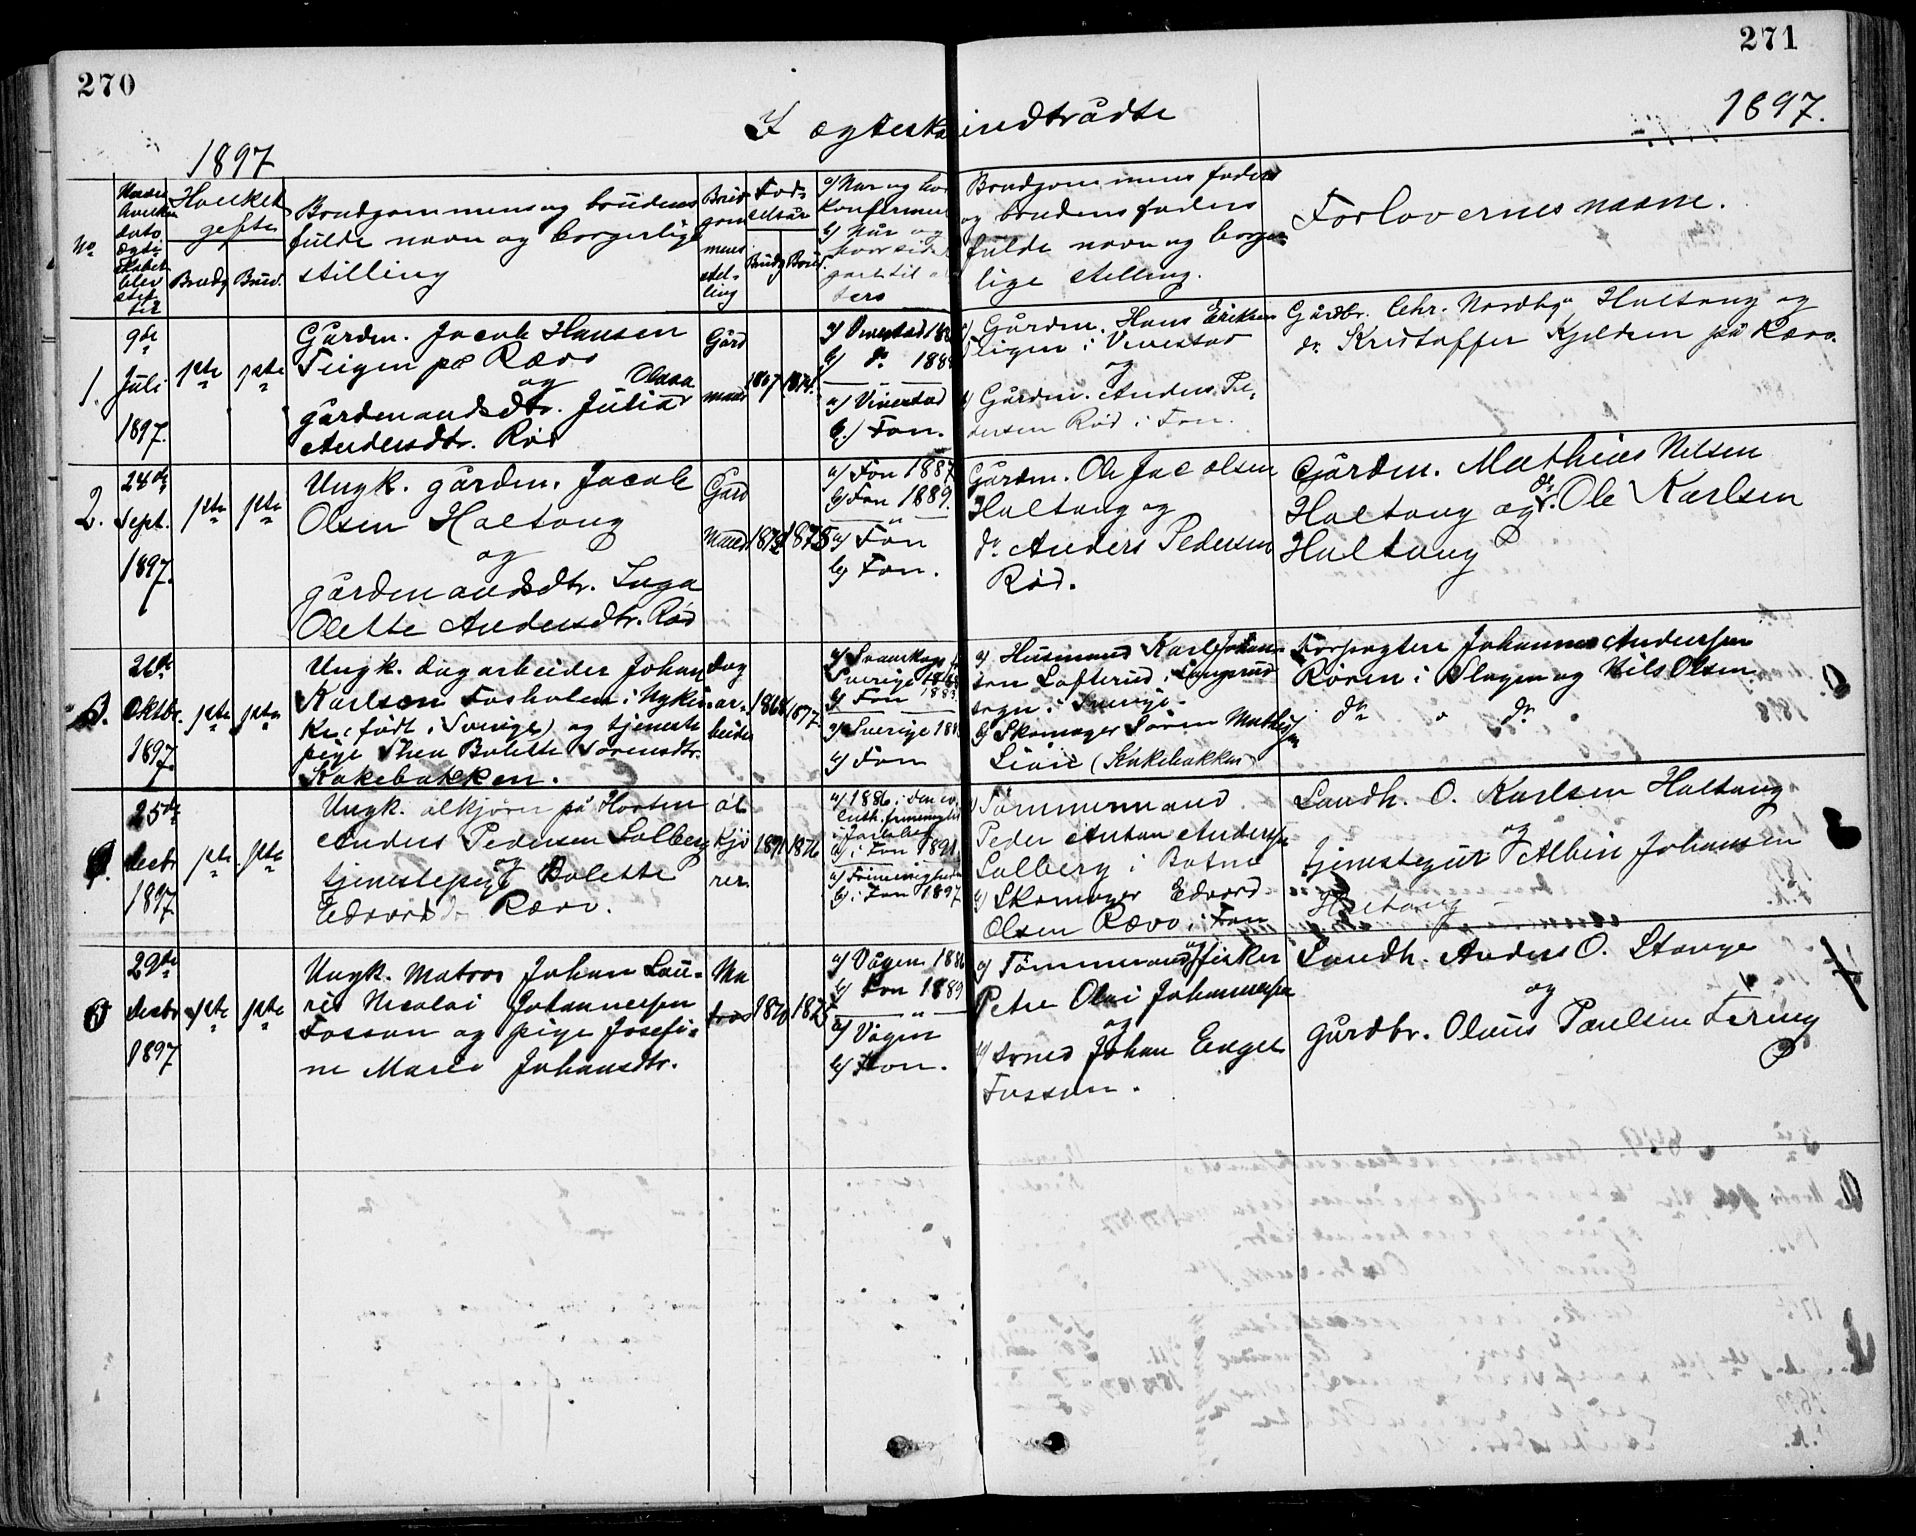 270
271
I ægteska indtrådte
1897.
1897
No
Hvilket
gifte
Brudg
Brud.
Brudgommens og brudens
fulde navn og borgerlige
stilling
Brud
gom
mens
stil-
ling
Fød-
selsår
Brudg
Brud.
a) Når og hvor
konfirmeret
b) Når og
hvor sidst
gået til al
ters
Brudgommens faders
og brudens faders
fulde navn og borger
lige stilling.
Forlovernes navne.
1.
9de
Juli
1897.
1ste
1ste
Gårdm. Jacob Hansen
Teigen på Rævo
og Olava
gårdmandsdtr. Julia
Andersdtr. Rød
Gård
mand
1867
1874.
a) Vivestad 188
b) do 188
a) Vivestad
b.) Fon.
a) Gårdm. Hans Eriksen
Teigen i Vivestad
og
b) Gårdm. Anders Pe-
dersen Rød i Fon.
Gårdbr. Chr. Nordby Holtong og
do Kristoffer Kjeldsen på Rævo.
2.
28de
Sept.
1897.
1ste
1ste
Ungk. gårdm. Jacob
Olsen Holtong
og
gårdmandsdtr. Inga
Olette Andersdtr. Rød
Gård
Mand
1872
1875
a) Fon 1887
b) Fon 1889.
a) Fon
b) Fon.
Gårdm. Ole Jacobsen
Holtong og
do Anders Pedersen
Rød.
Gårdm. Mathias Nilsen
Holtong og do. Ole Karlsen
Holtong
3.
26de
Oktbr.
1897.
1ste
1ste
Ungk. dagarbeider Johan
Karlsen Fosholen i Nykir-
ke (født i Sverige) og tjeneste
pige Thea Bolette Sørensdtr.
Kakebakken.
Dag
ar-
beider
1868
1877.
Sverige 188
b) Fon 188
a) Sverige 188
b) Fon
a) Husmand Karl Johan-
sen Lofterud i Langerud
sogn i Sverige.
b) Skomager Søren Mathis
Lian (Kakebakken)
Forpagtere Johannes Anderssen
Røren i Slagen og Nils Olsen
do " do
4.
25de
decbr
1897
1ste
1ste
Ungk. ølkjører på Horten
Anders Pedersen Solberg
og
tjenestepige Bolette
Edvardsdtr Rævo.
øl
kjø
rer
1871
1876
a) 1886 i den ev.
luth. frimenighed
i Jarlsberg
b) i Fon 1891.
a) Frimenigheden
b) i Fon 1897
a) Tømmermand
Peder Anton Anderssen
Solberg i Botne
b) Skomager Edvard
Olsen Rævo i Fon
Landh. O. Karlsen Holtong
og
tjenestegut Albin Johansen
Holtong
5
29de
decbr
1897
1ste
1ste
Ungk. Matros Johan Lau-
ris Nicolai Johannessen
Fossan og pige Josefi-
ne Marie Johansdtr.
Ma
tros
1870
1875
a) Vågen 1886
b) Fon 1889
a) Vågen
b) Fon.
a) Tømmermand og fisker
Petre Olai Johannessen
og
b) Johan Engel
Fossan.
Landh. Anders O. Stange
og
gårdbr. Olaus Paulsen Firing